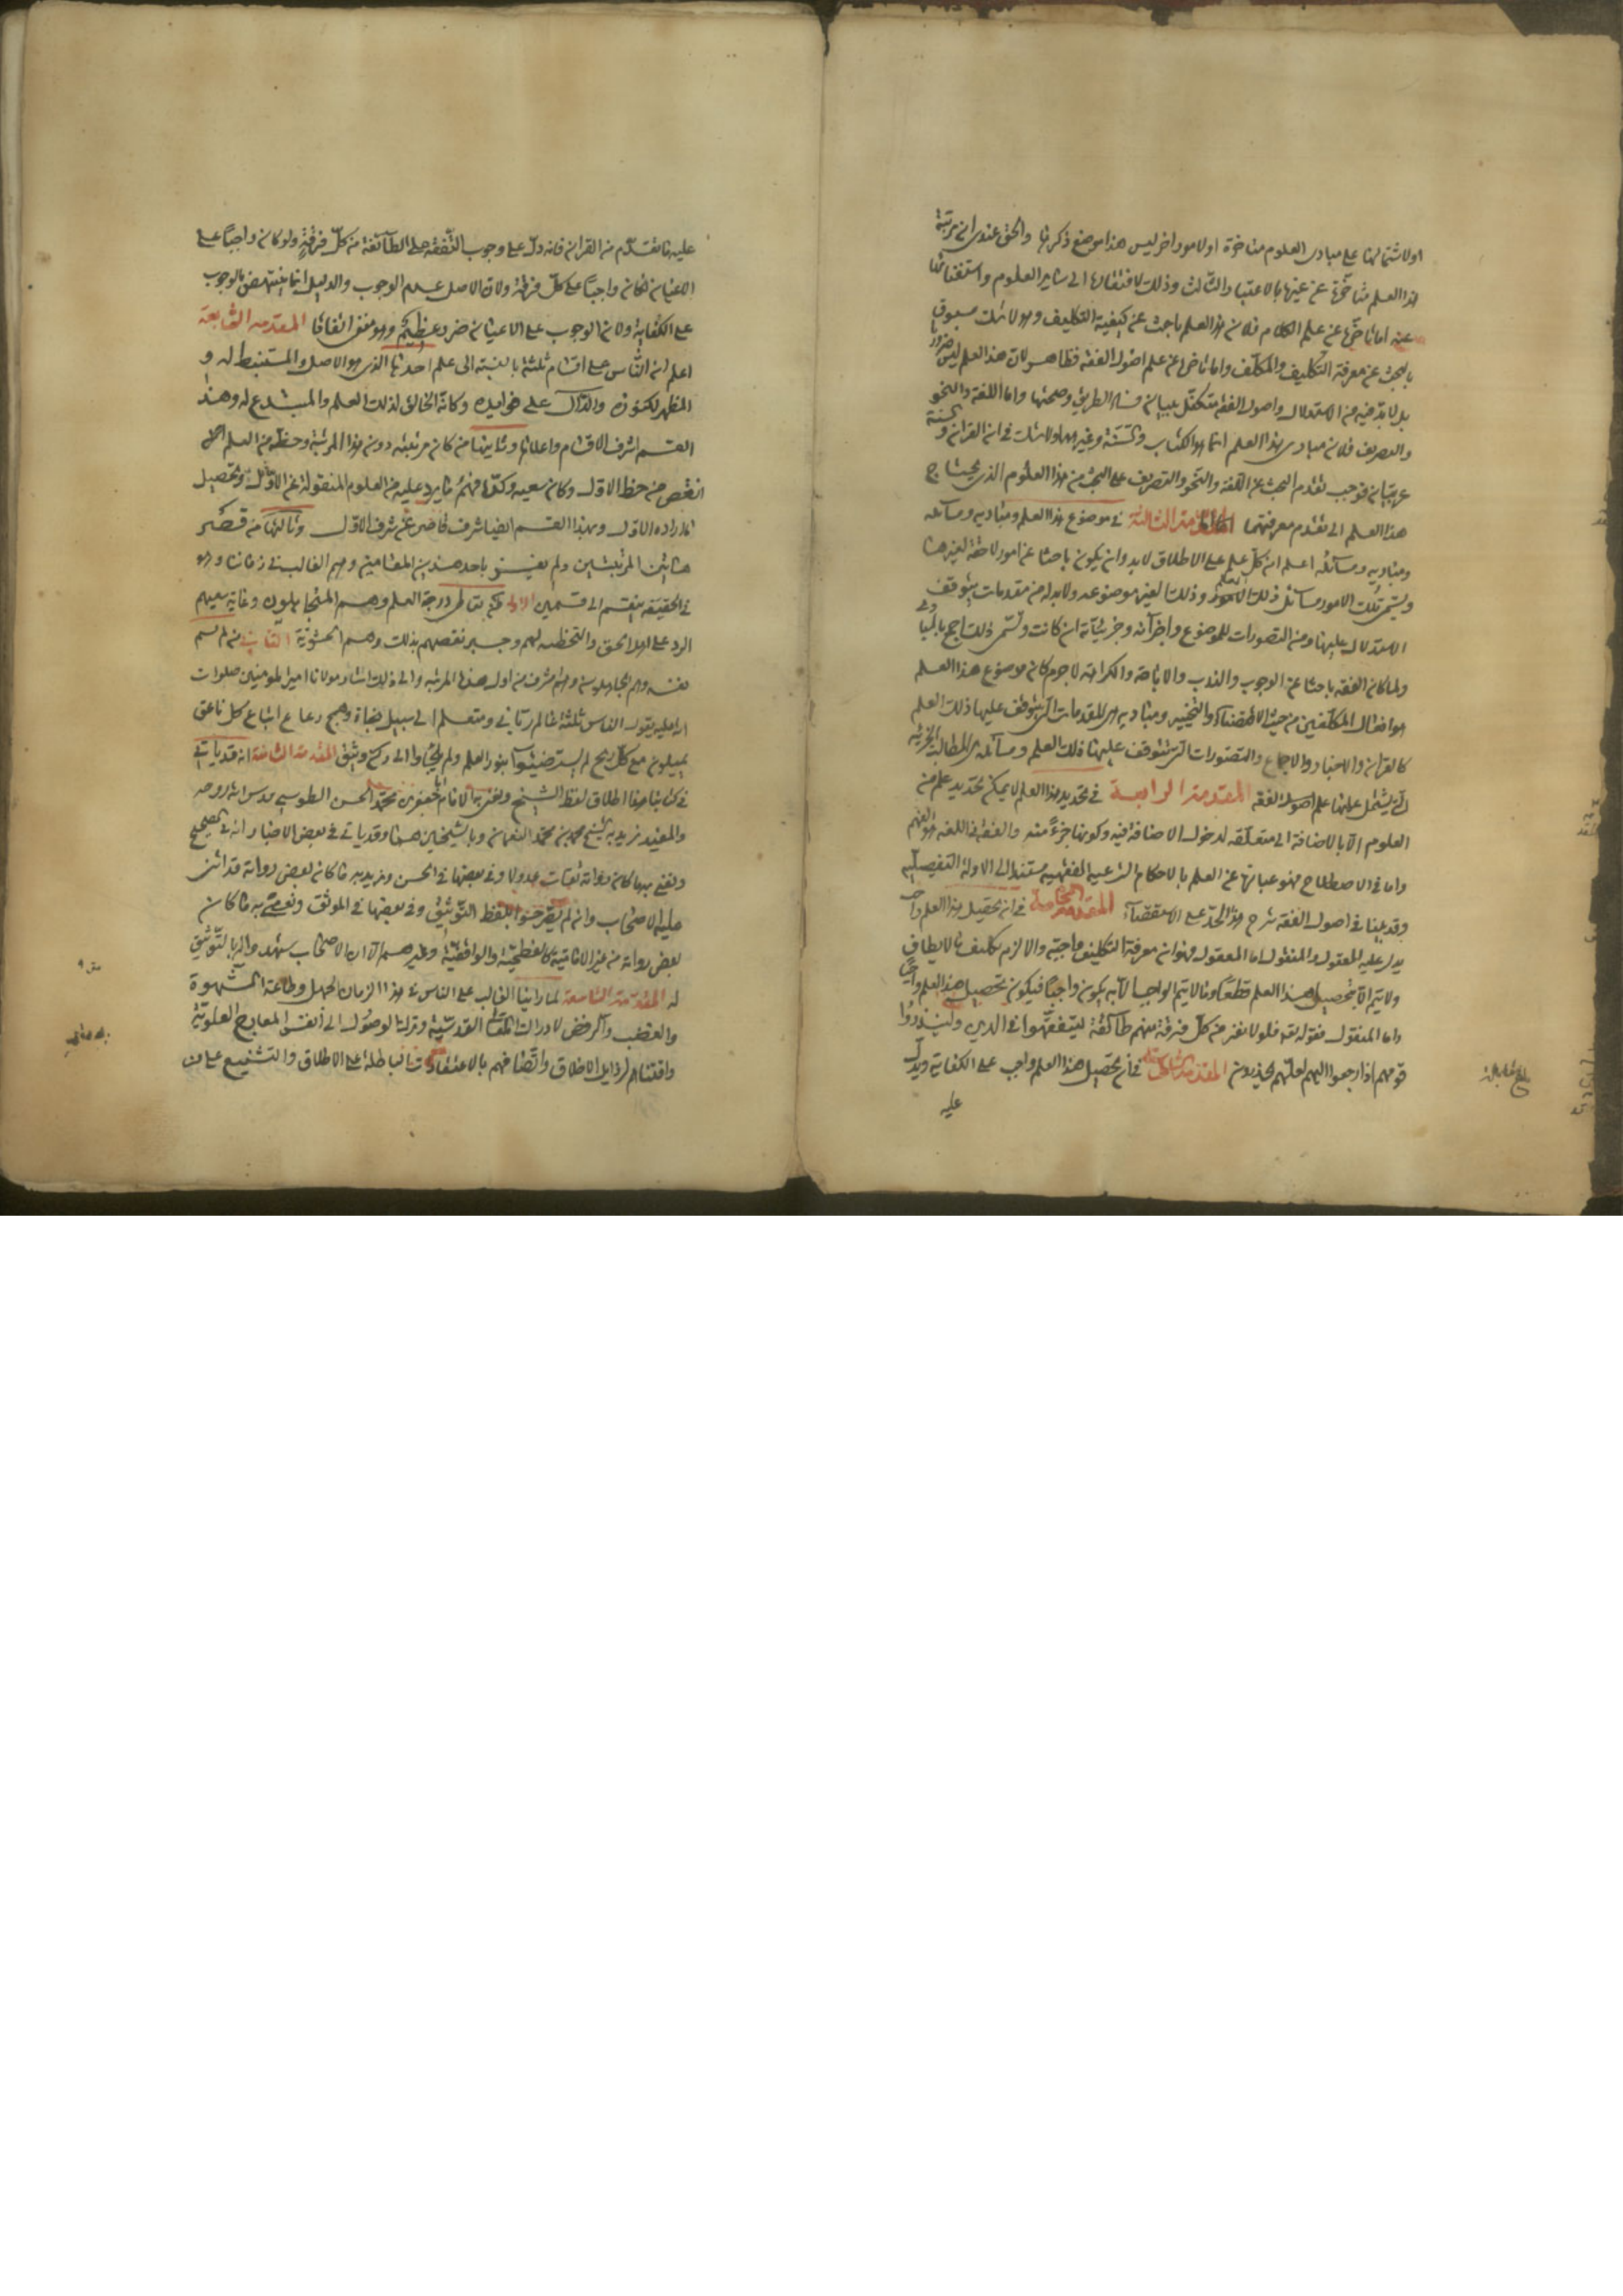 اولاشتمالها على مبادى العلوم متاخرة اولامور اخر ليس هذا موضع ذكرها والحق عندى ان مرتبة
هذا العلم متاخرة عن غيرها بالاعتبار الثالث وذلك لافتقارها الى سائر العلوم واستغنائها
عنه اما تاخرها عن علم الكلام فلان هذا العلم باحث عن كيفية التكليف وهو لا شك مسبوق
بالبحث عن معرفة التكليف والمكلف واما تاخرها عن علم اصول الفقه فظاهر لان هذا العلم ليس ضروريا
بل لابد فيه من الاستدلال واصول الفقه متكفل ببيان فساد الطريق وصحتها واما اللغة والنحو
والتصريف فلان مبادى هذا العلم انما هو الكتاب والسنة وغيرهما ولا شك فى ان القران والسنة
عربيان فوجب تقدم البحث عن اللغة والنحو والتصريف على البحث من هذا العلوم الذى يحتاج
هذا العلم الى تقدم معرفتهما المقدمة الثالثة فى موضوع هذا العلم ومباديه ومسائله
ومباديه ومسائله اعلم ان كل علم على الاطلاق لابد وان يكون باحثا عن امور لاحقة لغيرها
ويسمى تلك الامور مسائل ذلك العلم وذلك الغير موضوعه ولابد له من مقدمات يتوقف
الاستدلال عليها ومن التصورات للموضوع واجزائه وجزئياته ان كانت ويسمى ذلك اجمع بالمبادى
ولما كان الفقه باحثا عن الوجوب والندب والاباحة والكراهة لاجرم كان موضوع هذا العلم
هو افعال المكلفين من حيث الاقتضاء والتخيير ومباديه هى المقدمات التى يتوقف عليها ذلك العلم
كالقران والاخبار والاجماع والتصورات التى يتوقف عليها ذلك العلم ومسائله هى المطالب الجزئية
التى يشتمل عليها علم اصول الفقه المقدمة الرابعة فى تحديد هذا العلم لا يمكن تحديد علم من
العلوم الا بالاضافة الى متعلقه لدخول الاضافة فيه وكونها جزءا منه والفقه فى اللغة هو الفهم
واما فى الاصطلاح فهو عبارة عن العلم بالاحكام الشرعية الفقهية مستندا الى الادلة التفصيلية
وقد بلغنا فى اصول الفقه شرح هذا الحد على الاستقصاء المقدمة الخامسة فى ان تحصيل هذا العلم واجب
يدل عليه المعقول والمنقول اما المعقول فهو ان معرفة التكليف واجبة والا لزم تكليف ما لا يطاق
ولا يتم الا بتحصيل هذا العلم قطعا وما لا يتم الواجب الا به يكون واجبا فيكون تحصيل هذا العلم واجبا
واما المنقول فقوله تعه فلولا نفر من كل فرقة منهم طائفة ليتفقهوا فى الدين ولينذروا
قومهم اذا رجعوا اليهم لعلهم يحذرون المقدمة السادسة فى ان تحصيل هذا العلم واجب على الكفاية ويدل
عليه
عليه ما تقدم من القران فانه دل على وجوب التفقه على الطائفة من كل فرقة ولو كان واجبا على
الاعيان لكان واجبا على كل فرقة ولان الاصل عدم الوجوب والدليل انما ينتهض بالوجوب
على الكفاية ولان الوجوب على الاعيان ضرر عظيم وهو منفى اتفاقا المقدمة السابعة
اعلم ان الناس على اقسام ثلثة بالنسبة الى علم احدها الذى هو الاصل والمستنبط له و
المظهر لكنوزه والدال على فوايده وكانه الخالق لذلك العلم والمبتدع له وهذا
القسم اشرف الاقسام واعلاها وثانيها من كان مرتبته دون هذا المرتبة وحظه من العلم
انقص من حظ الاول وكان سعيه وكده فهم ما يرد عليه من العلوم المنقولة عن الاول وتحصيل
ما اراده الاول وبهذا القسم ايضا شرف قاصر عن شرف الاول وثالثها من قصر
هاتين المرتبتين ولم يفز باحد هذين المقامين وهم الغالب فى زماننا وهو
فى الحقيقة ينقسم الى قسمين الاول من تعاطى درجة العلم وهم المتجاهلون وغاية سعيهم
الرد على اهل الحق والتخطئة لهم وجبر نقصهم بذلك وهم الحشوية الثانى من لم يسم
نفسه وهم الجاهلون وهم اشرف من اول هذه المرتبة والى ذلك اشار مولانا امير المومنين صلوات
الله عليه بقوله الناس ثلثة عالم ربانى ومتعلم الى سبيل نجاة وهمج رعاع اتباع كل ناعق
يميلون مع كل ريح لم يستضيئوا بنور العلم ولم يلجاوا الى ركن وثيق المقدمة الثامنة انه قد ياتى
فى كتابنا هذا اطلاق لفظ الشيخ ونعنى به الامام ابا جعفر محمد بن الحسن الطوسى قدس الله روحه
والمفيد نريد به الشيخ محمد بن محمد النعمان وبالشيخين هما وقد ياتى فى بعض الاخبار انه فى الصحيح
ونعنى بها كان رواته ثقات عدولا وفى بعضها فى الحسن ونريد به ما كان بعض رواته قد اثنى
عليه الاصحاب وان لم يصرحوا بلفظ التوثيق وفى بعضها فى الموثق ونعنى به ما كان
بعض رواته من غير الامامية كالفطحية والواقفية وغيرهم الا ان الاصحاب شهدوا بالتوثيق
له المقدمة التاسعة لما راينا الغالب على الناس فى هذا الزمان الجهل وطاعة الشهوة
والغضب والرفض لادراك القدسية وترك الوصول الى انفس المعارج العلوية
واقتناهم لرذايل الاخلاق واتصافهم بالاعتقادات الباطلة على الاطلاق والتشنيع على من